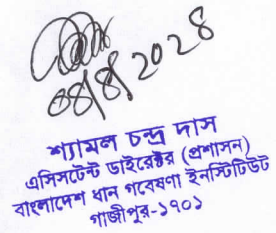 শ্যামল চন্দ্র দাস
এসিসটেন্ট ডাইরেক্টর (প্রশাসন)
বাংলাদেশ ধান গবেষণা ইনস্টিটিউট
গাজীপুর-১৭০১